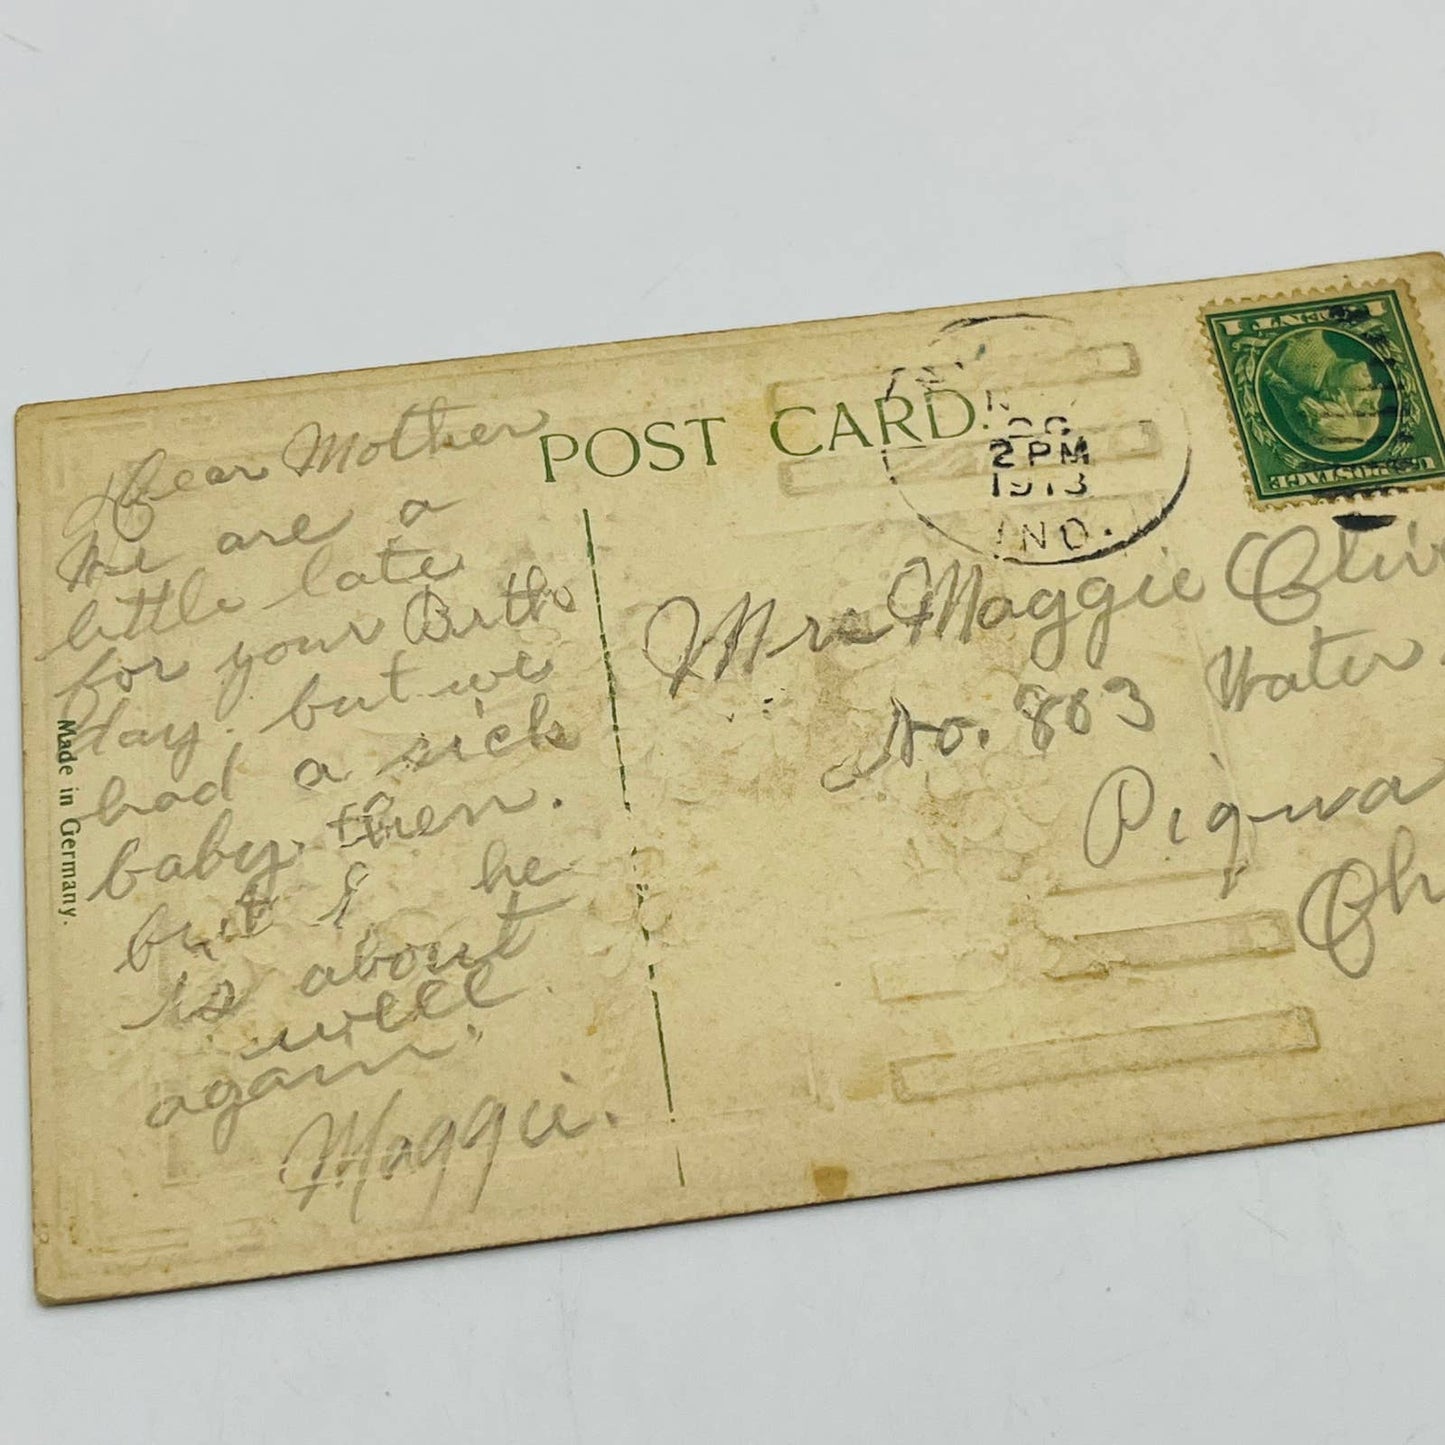 POST CARD.
2 PM
1913
IND.
U.S. POSTAGE
Dear Mother
We are a
little late
for your Birth
day. but we
had a sick
baby. then.
but he
is about
well
again.
Maggie.
Made in Germany.
Mrs Maggie
No. 803 Water
Piqua